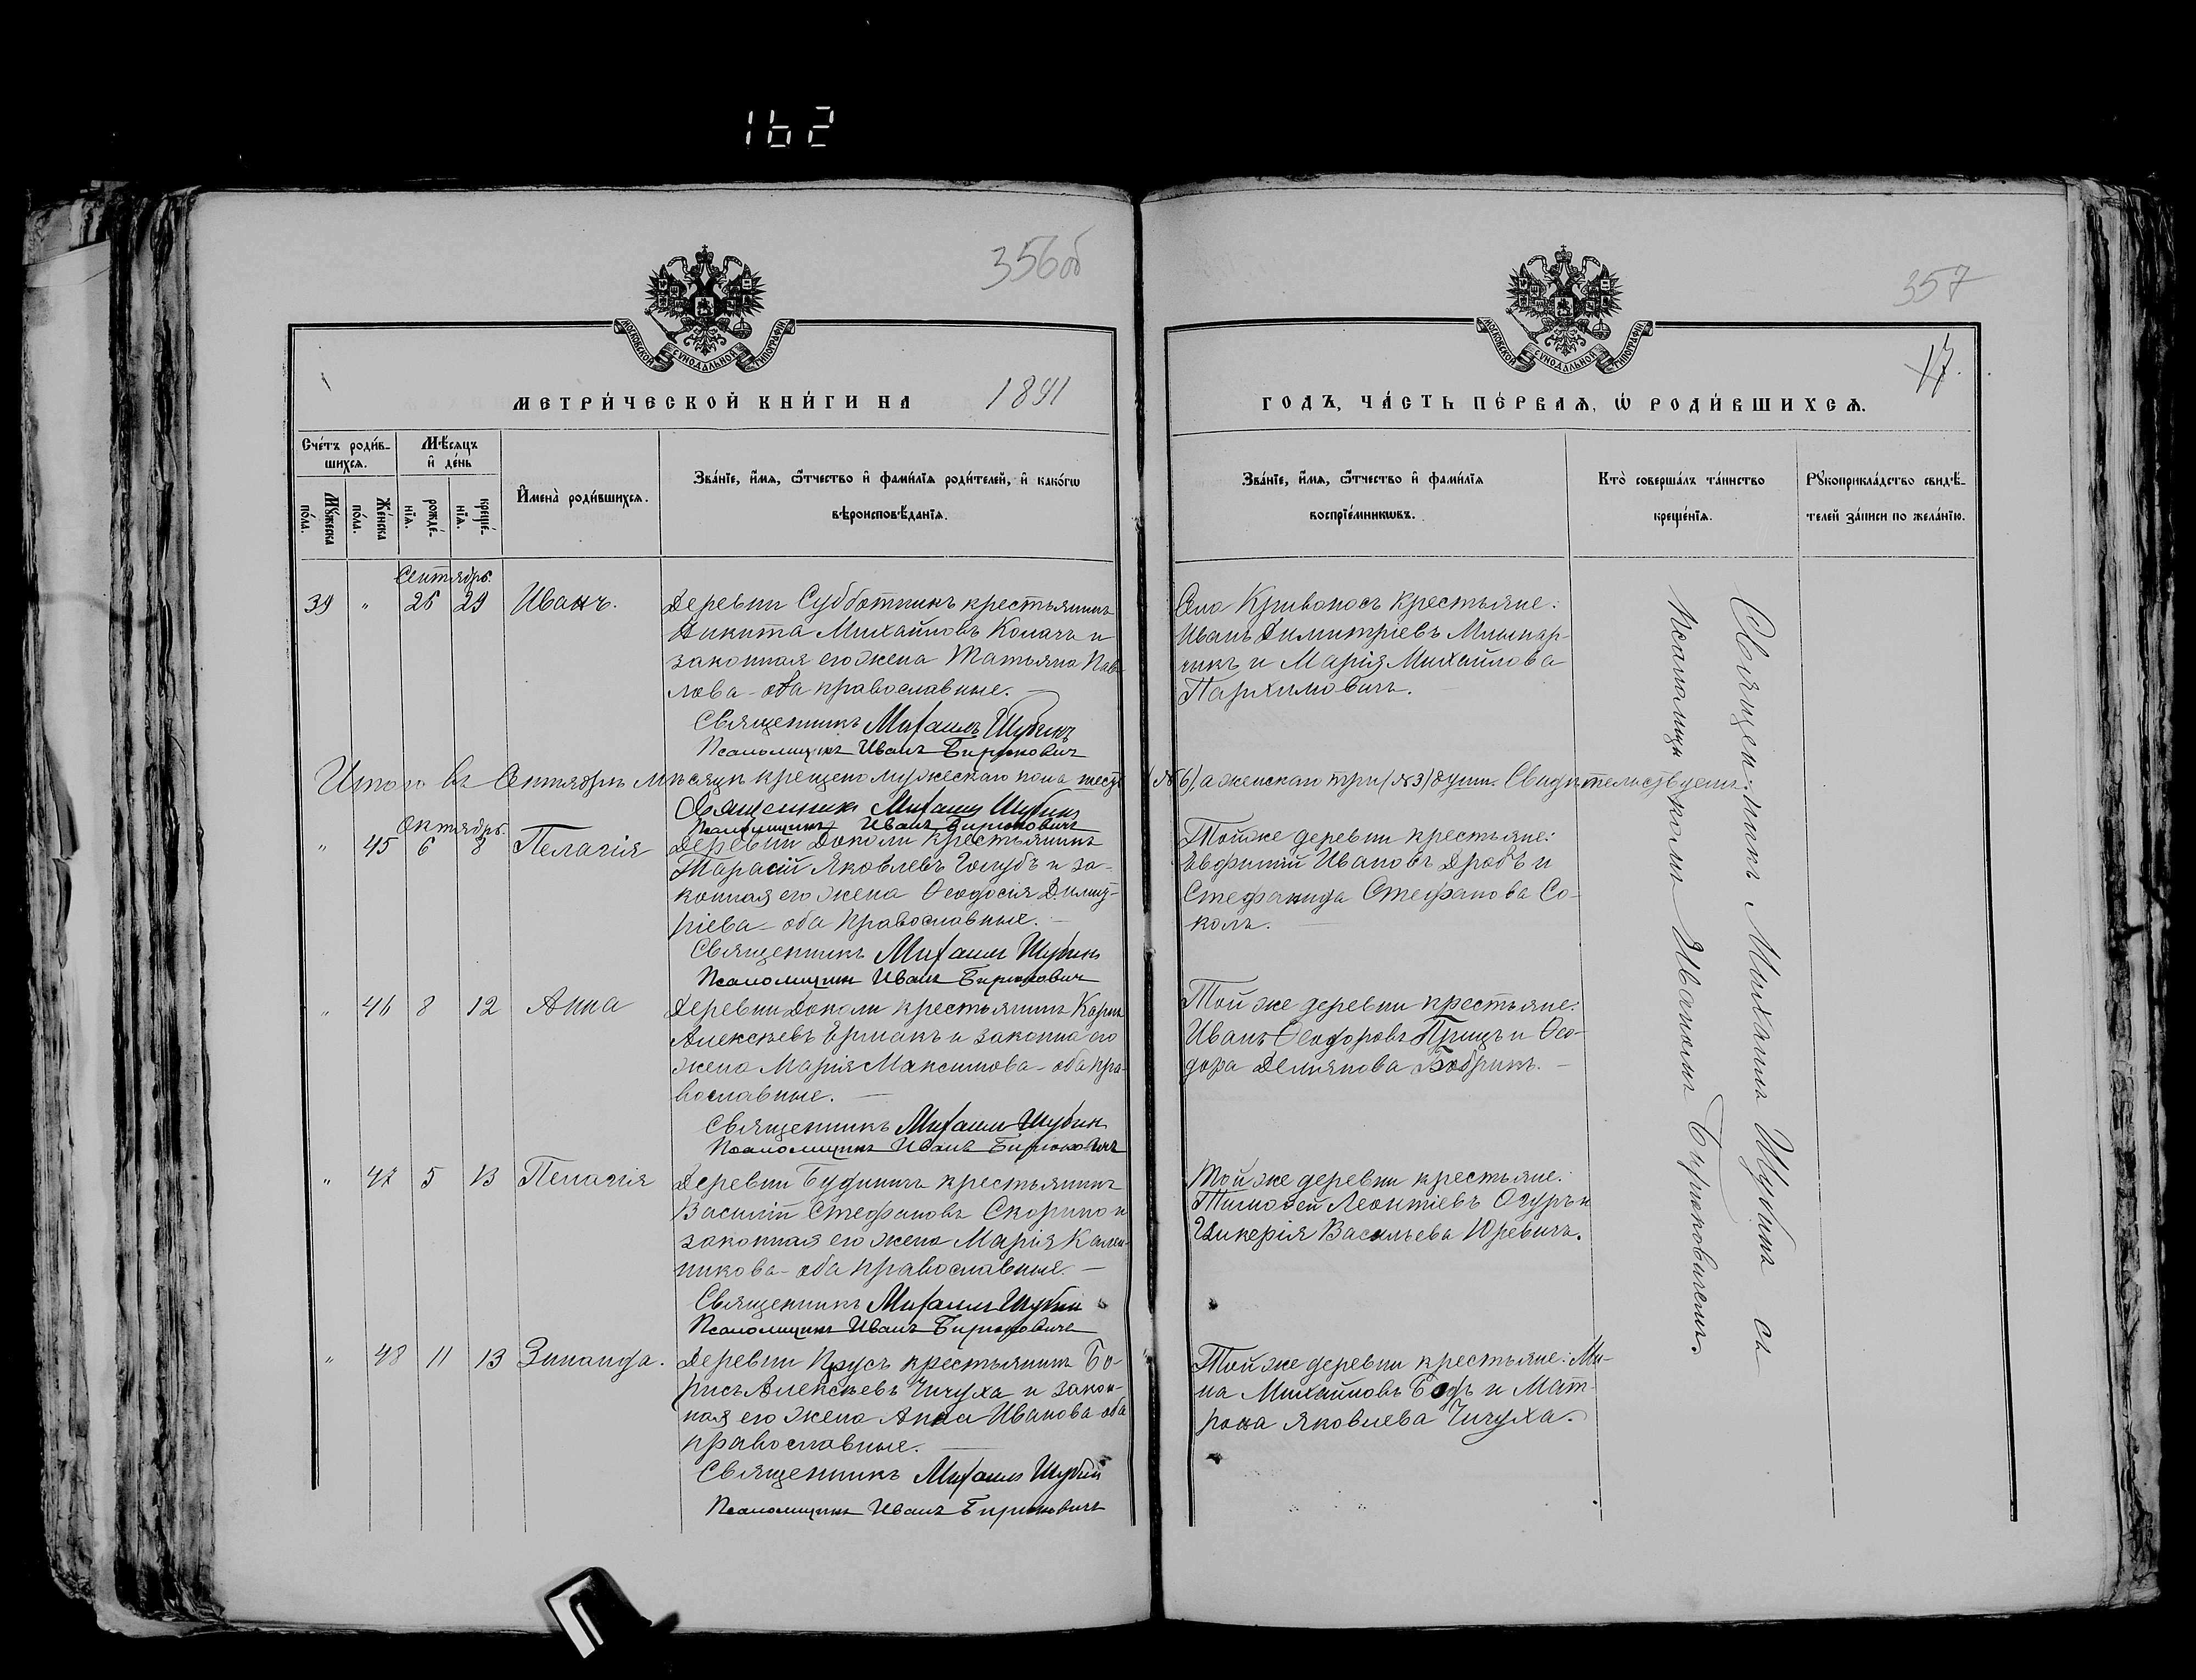 162
356об
357
17.
МОСКОВСКОЙ СУНОДАЛЬНОЙ ТИПОГРАФІИ
МОСКОВСКОЙ СУНОДАЛЬНОЙ ТИПОГРАФІИ
МЕТРИ́ЧЕСКОЙ КНИ́ГИ НА 1891
ГОДЪ, ЧА́СТЬ ПЕ́РВАѦ, Ѡ҆ РОДИ́ВШИХСѦ.
Сче́тъ роди́в-
шихсѧ.
Мѣ́сѧцъ
и҆ де́нь
Мꙋ́жеска
по́ла.
Же́нска
по́ла.
рожде́-
нїѧ.
креще́-
нїѧ.
И҆мена̀ роди́вшихсѧ.
Зва́нїе, и҆́мѧ, ѻ҆́тчество и҆ фами́лїѧ роди́телей, и҆ како́гѡ
вѣроисповѣ́данїѧ.
Зва́нїе, и҆́мѧ, ѻ҆́тчество и҆ фами́лїѧ
воспрїе́мникѡвъ.
Кто̀ соверша́лъ та́инство
креще́нїѧ.
Рꙋкоприкла́дство свидѣ́-
телей за́писи по жела́нїю.
Сентябрь.
39 " 26 29 Иванъ.
Деревни Субботникъ крестьянинъ
Никита Михайловъ Колачъ и
законная его жена Татьяна Пав-
лова - оба православные.
Священникъ Михаилъ Шубинъ
Псаломщикъ Иванъ Бирюковичъ
Села Кривоносъ крестьяне:
Иванъ Димитріевъ Млынар-
чикъ и Марія Михайлова
Пархимовичъ.
Итого въ Сентябрѣ мѣсяцѣ крещено мужескаго пола шесть (№6), а женскаго три (№3) души. Свидѣтельствуемъ:
Священникъ Михаилъ Шубинъ
Псаломщикъ Иванъ Бирюковичъ
Октябрь.
" 45 6 8 Пелагія
Деревни Доколи крестьянинъ
Тарасій Яковлевъ Голубъ и за-
конная его жена Ѳеодосія Димит-
ріева - оба православные.
Священникъ Михаилъ Шубинъ
Псаломщикъ Иванъ Бирюковичъ
Той же деревни крестьяне:
Евфимій Ивановъ Дробъ и
Стефанида Стефанова Со-
колъ.
" 46 8 12 Анна
Деревни Доколи крестьянинъ Карпъ
Алексѣевъ Ермакъ и законна его
жена Марія Максимова - оба пра-
вославные.
Священникъ Михаилъ Шубинъ
Псаломщикъ Иванъ Бирюковичъ
Той же деревни крестьяне:
Иванъ Ѳеодоровъ Прищъ и Ѳео-
дора Демьянова Бобрикъ.
" 47 5 13 Пелагія
Деревни Будничъ крестьянинъ
Василій Стефановъ Скорино и
законная его жена Марія Калин-
никова - оба православные.
Священникъ Михаилъ Шубинъ
Псаломщикъ Иванъ Бирюковичъ
Той же деревни крестьяне:
Тимоѳей Леонтіевъ Огуръ и
Гликерія Васильева Юревичъ.
" 48 11 13 Зинаида.
Деревни Прусъ крестьянинъ Бо-
рисъ Алексѣевъ Чичуха и закон-
ная его жена Анна Иванова - оба
православные.
Священникъ Михаилъ Шубинъ
Псаломщикъ Иванъ Бирюковичъ
Той же деревни крестьяне: Ми-
на Михайловъ Бодъ и Мат-
рона Яковлева Чичуха.
Священникъ Михаилъ Шубинъ съ
Псаломщикомъ Иваномъ Бирюковичемъ.